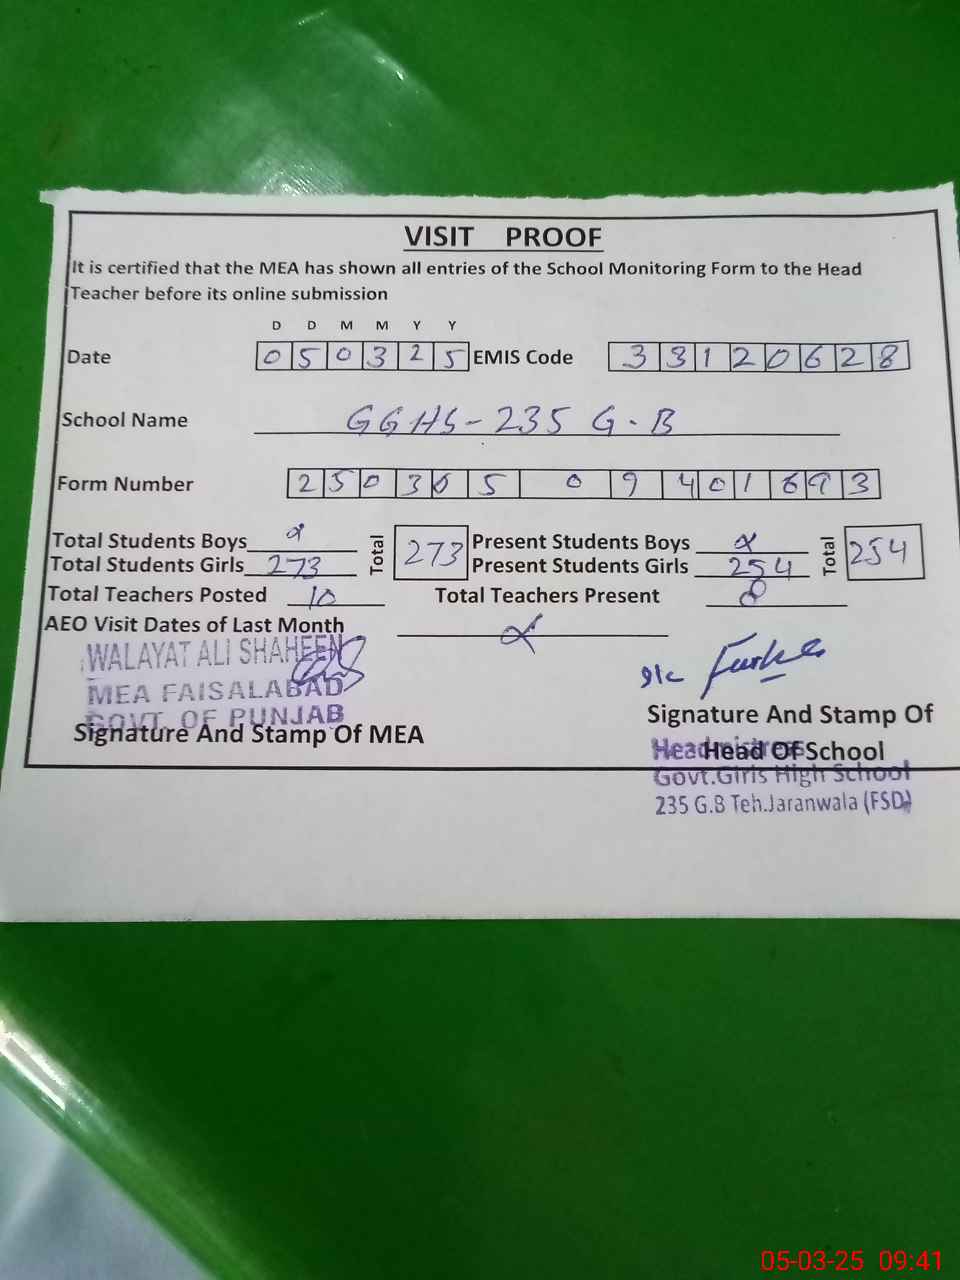 VISIT PROOF
It is certified that the MEA has shown all entries of the School Monitoring Form to the Head
Teacher before its online submission
D D M M Y Y
Date 0 5 0 3 2 5 EMIS Code 3 3 1 2 0 6 2 8
School Name GGHS-235 G.B
Form Number 2 5 0 3 0 5 0 9 4 0 1 6 9 3
Total Students Boys Total 273 Present Students Boys Total 254
Total Students Girls 273 Present Students Girls 254
Total Teachers Posted 10 Total Teachers Present 8
AEO Visit Dates of Last Month
WALAYAT ALI SHAHEEN
MEA FAISALABAD
GOVT. OF PUNJAB
Signature And Stamp Of MEA
Signature And Stamp Of
Head Of School
Headmistress
Govt.Girls High School
235 G.B Teh.Jaranwala (FSD)
05-03-25 09:41